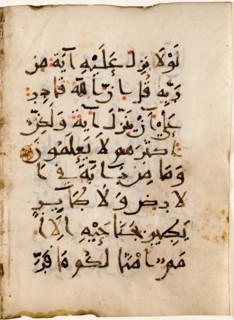 لولا نزل عليه آية من
ربه قل إن الله قادر
على أن ينزل آية ولكن
أكثرهم لا يعلمون
وما من دابة في ا
لأرض ولا طاير
يطير بجناحيه إلا أ
مم أمثالكم ما فر